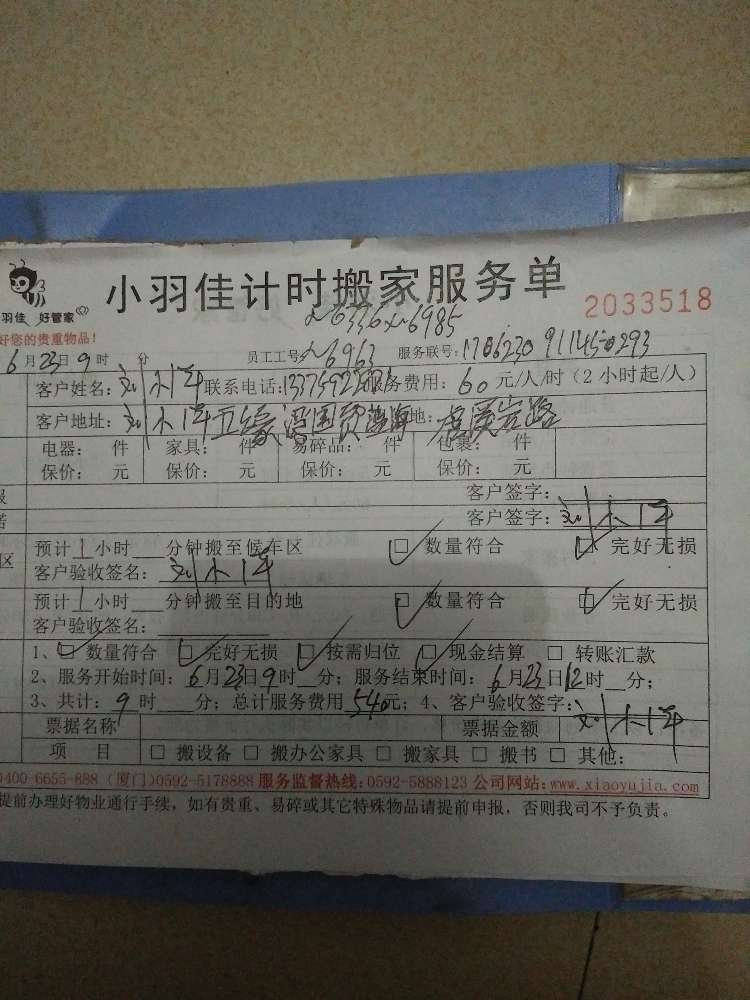 小羽佳计时搬家服务单
2033518
羽佳 好管家
6336 6985
好您的贵重物品!
6月23日9时 分 员工工号: 6963 服务联号:
客户姓名: 刘小 联系电话: 服务费用: 60元/人/时(2小时起/人)
客户地址: 刘小 五缘 国贸 地: 虎溪岩路
电器: 件 家具: 件 易碎品: 件 包裹: 件
保价: 元 保价: 元 保价: 元 保价: 元
客户签字:
客户签字: 刘小
预计1小时 分钟搬至候车区 ☑数量符合 ☑完好无损
客户验收签名: 刘小
预计1小时 分钟搬至目的地 ☑数量符合 ☑完好无损
客户验收签名:
1、☑数量符合 ☑完好无损 ☑按需归位 ☑现金结算 □转账汇款
2、服务开始时间: 6月23日9时 分; 服务结束时间: 6月23日12时 分;
3、共计: 9时 分; 总计服务费用 540元; 4、客户验收签字: 刘小
票据名称 票据金额
项 目 □搬设备 □搬办公家具 □搬家具 □搬书 □其他:
0400-6655-888 (厦门)0592-5178888 服务监督热线:0592-5888123 公司网站:www.xiaoyujia.com
提前办理好物业通行手续, 如有贵重、易碎或其它特殊物品请提前申报, 否则我司不予负责。